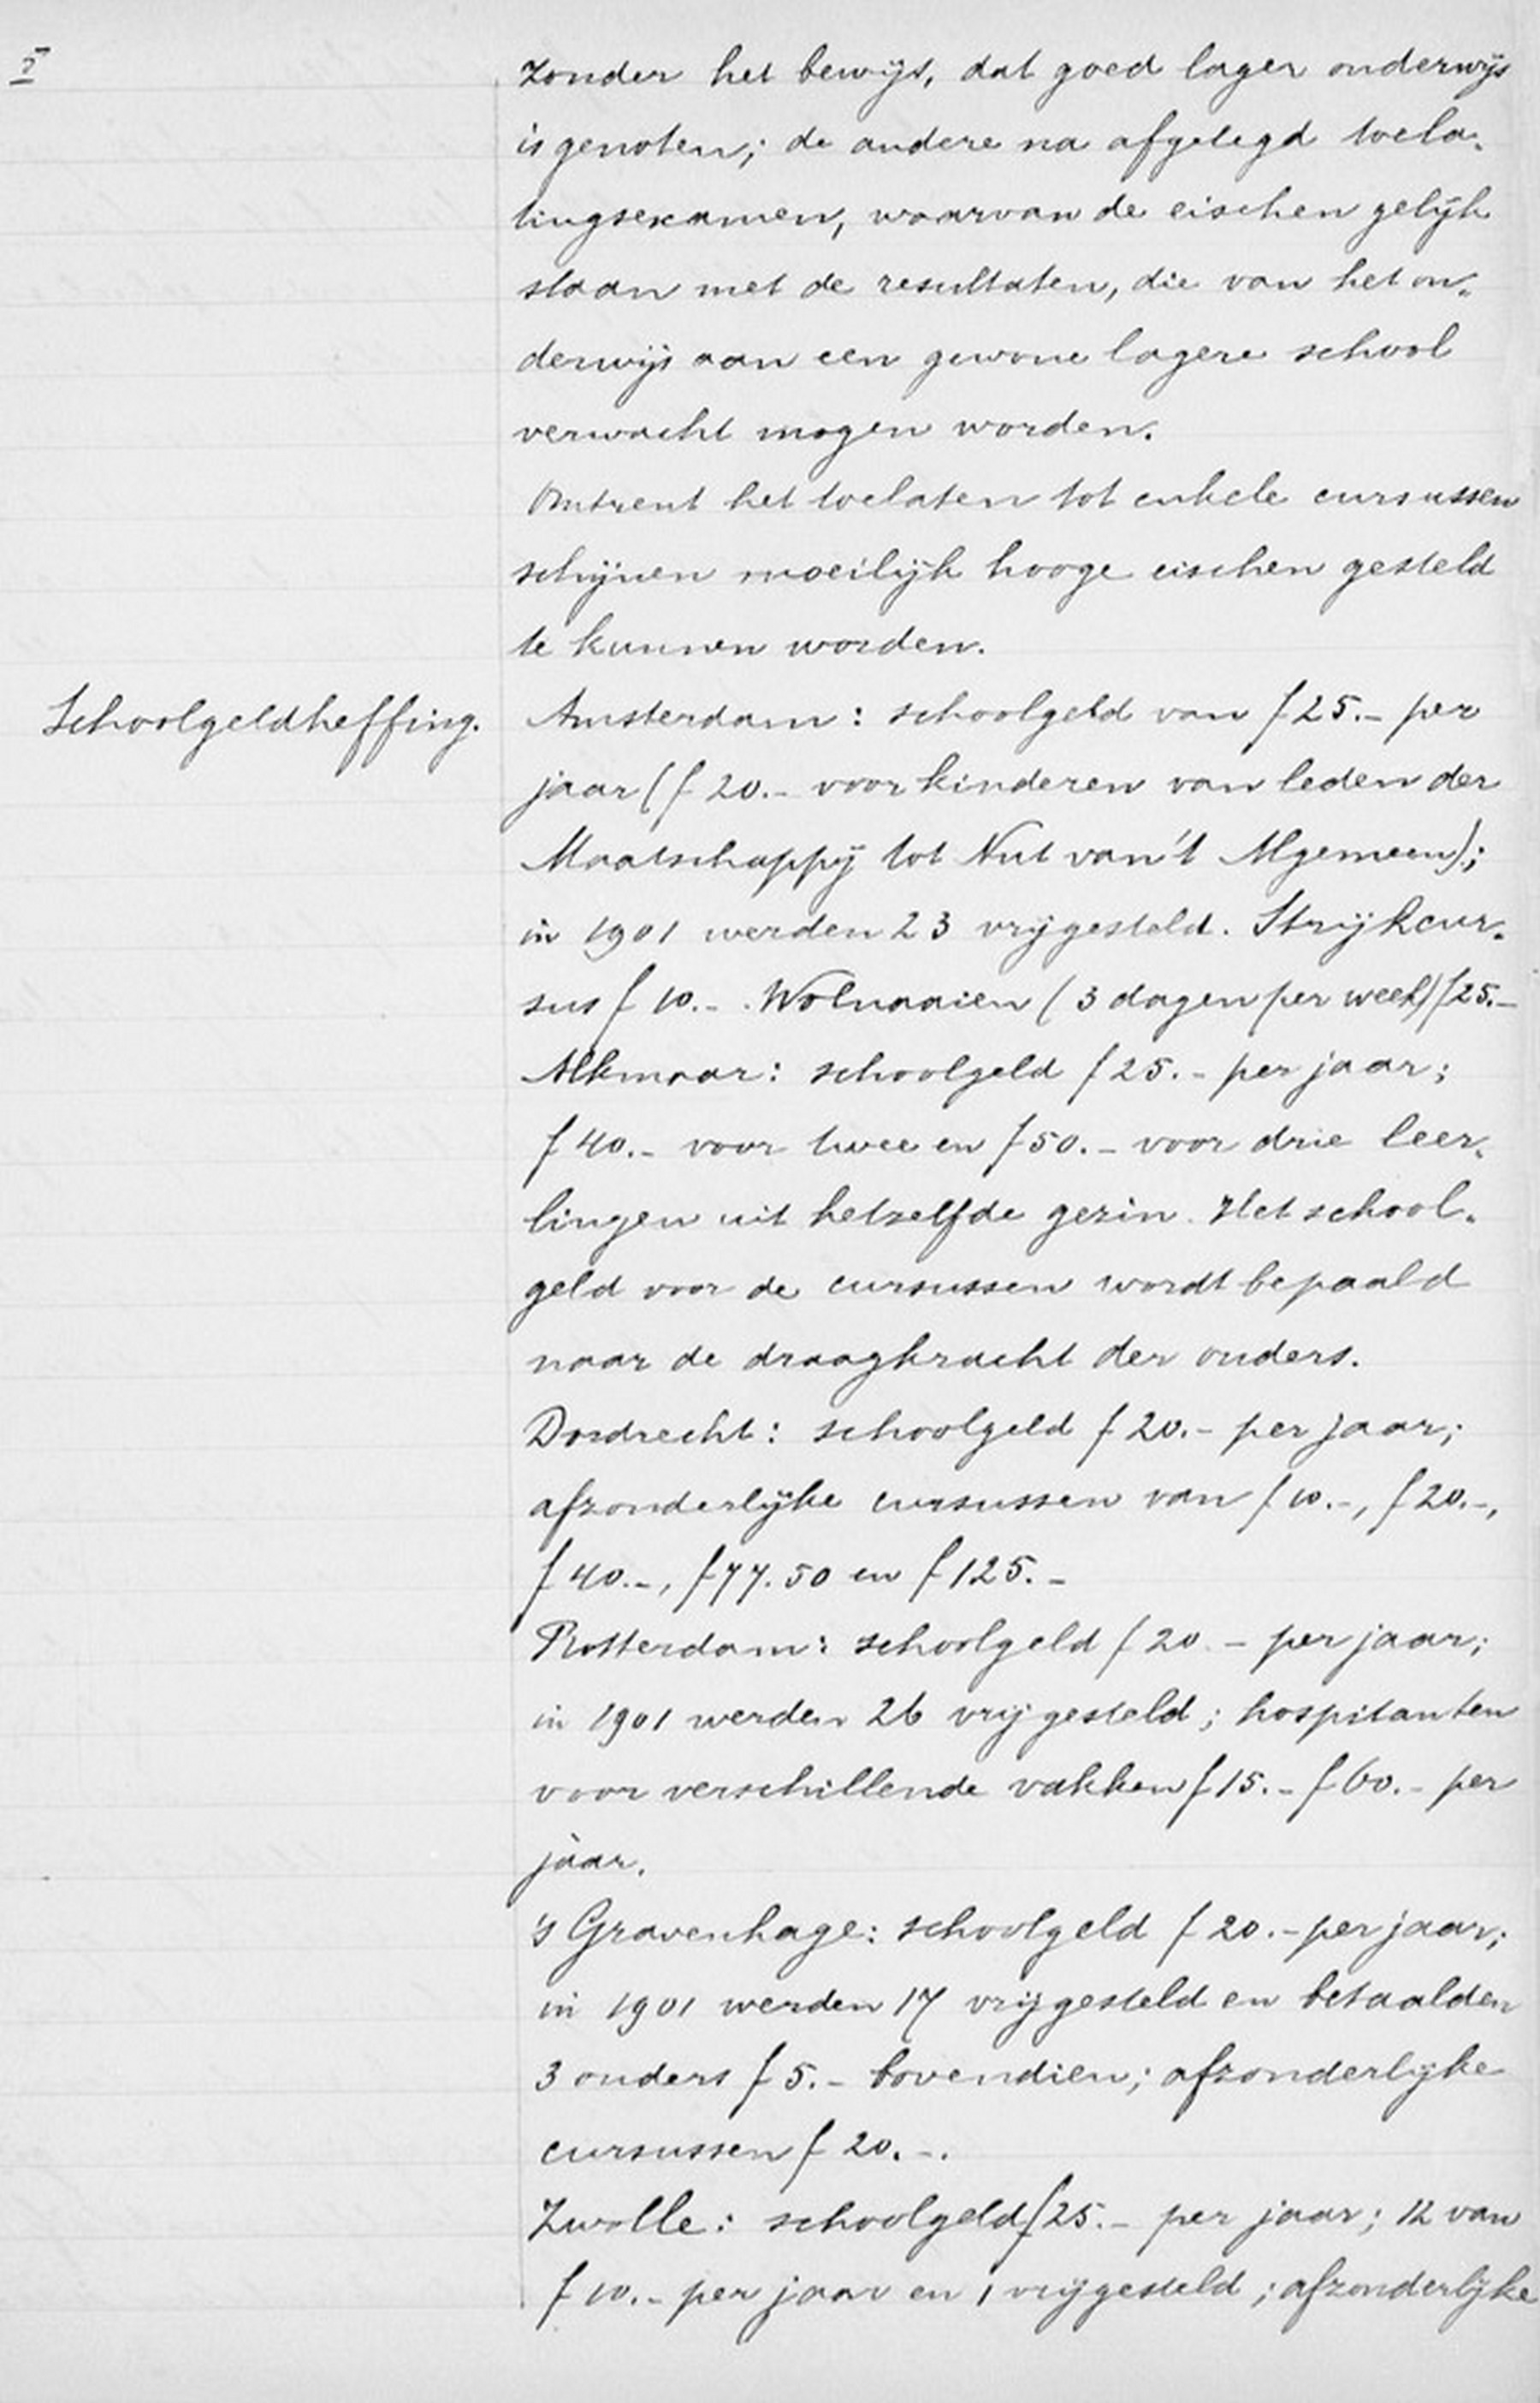 zonder het bewijs, dat goed lager onderwijs
is genoten; de andere na afgelegd toela-
tingsexamen, waarvan de eischen gelijk
staan met de resultaten, die van het on-
derwijs aan een gewone lagere school
verwacht mogen worden.
Omtrent het toelaten tot enkele cursussen
schijnen moeilijk hooge eischen gesteld
te kunnen worden.
Schoolgeldheffing.
Amsterdam: schoolgeld van f 25.- per
jaar (f 20.- voor kinderen van leden der
Maatschappij tot Nut van 't Algemeen);
in 1901 werden 23 vrijgesteld. Strijkcur-
sus f 10.-. Wolnaaien (3 dagen per week) f 25.-
Alkmaar: schoolgeld f 25.- per jaar;
f 40.- voor twee en f 50.- voor drie leer-
lingen uit hetzelfde gezin. Het school-
geld voor de cursussen wordt bepaald
naar de draagkracht der ouders.
Dordrecht: schoolgeld f 20.- per jaar;
afzonderlijke cursussen van f 10.-, f 20.-,
f 40.-, f 77.50 en f 125.-
Rotterdam: schoolgeld f 20.- per jaar;
in 1901 werden 26 vrijgesteld; hospitanten
voor verschillende vakken f 15.- f 60.- per
jaar.
's Gravenhage: schoolgeld f 20.- per jaar;
in 1901 werden 17 vrijgesteld en betaalden
3 ouders f 5.- bovendien; afzonderlijke
cursussen f 20.-.
Zwolle: schoolgeld f 25.- per jaar; 12 van
f 10.- per jaar en 1 vrijgesteld; afzonderlijke